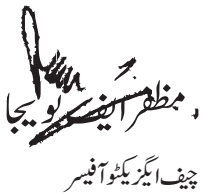 مظہر الیف ویلجا
چیف ایگزیکٹو آفیسر